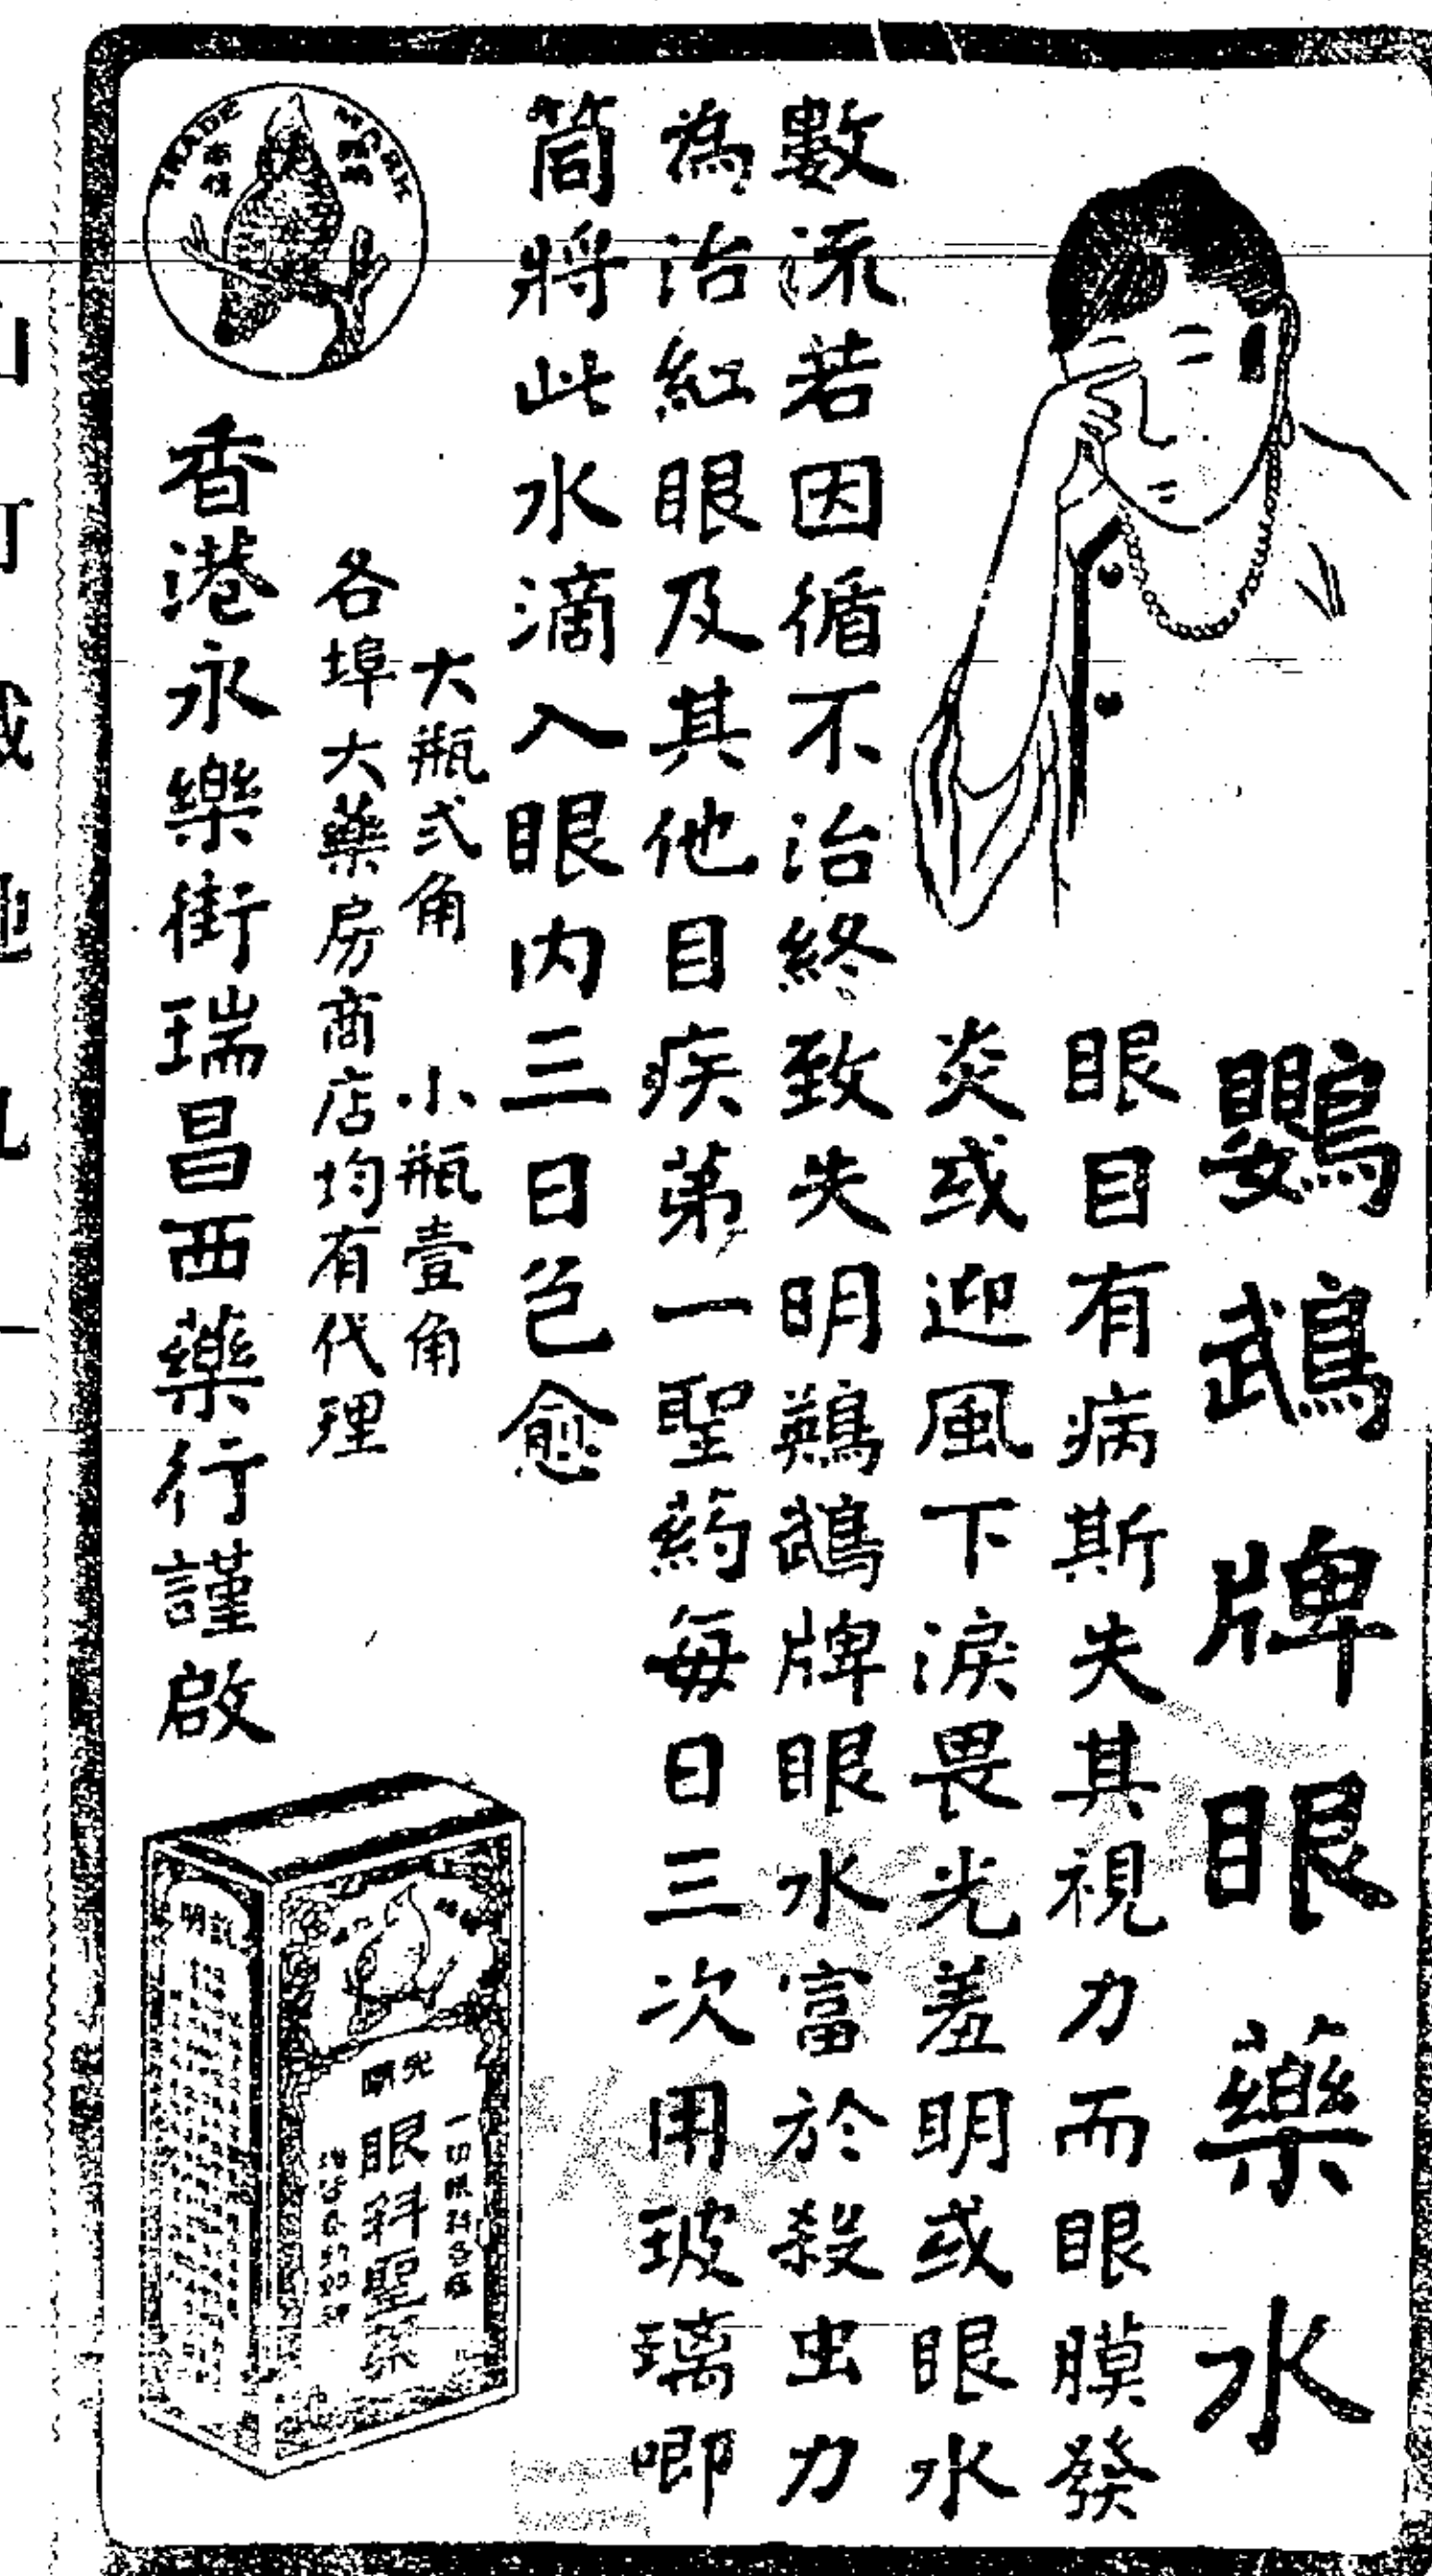 鸚鵡牌眼藥水
眼目有病斯失其視力而眼膜發
炎或迎風下淚畏光羞明或眼水
數流若因循不治終致失明鸚鵡牌眼水富於殺虫力
為治紅眼及其他目疾苐一聖葯每日三次用玻璃唧
筒將此水滴入眼內三日包愈
大瓶弍角 小瓶壹角
各埠大藥房商店均有代理
香港永樂街瑞昌西藥行謹啟
TRADE MARK
說明
光明
眼科聖藥